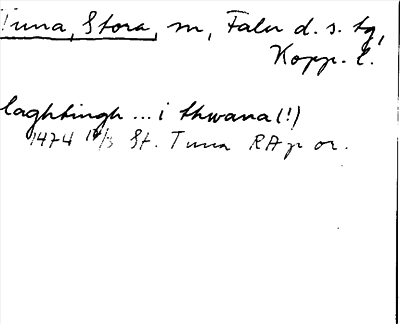 Tuna, Stora, sn, Falu d. s. tg,
Kopp. l.
laghtingh ... i thwana (!)
1474 19/3 St. Tuna RAp or.